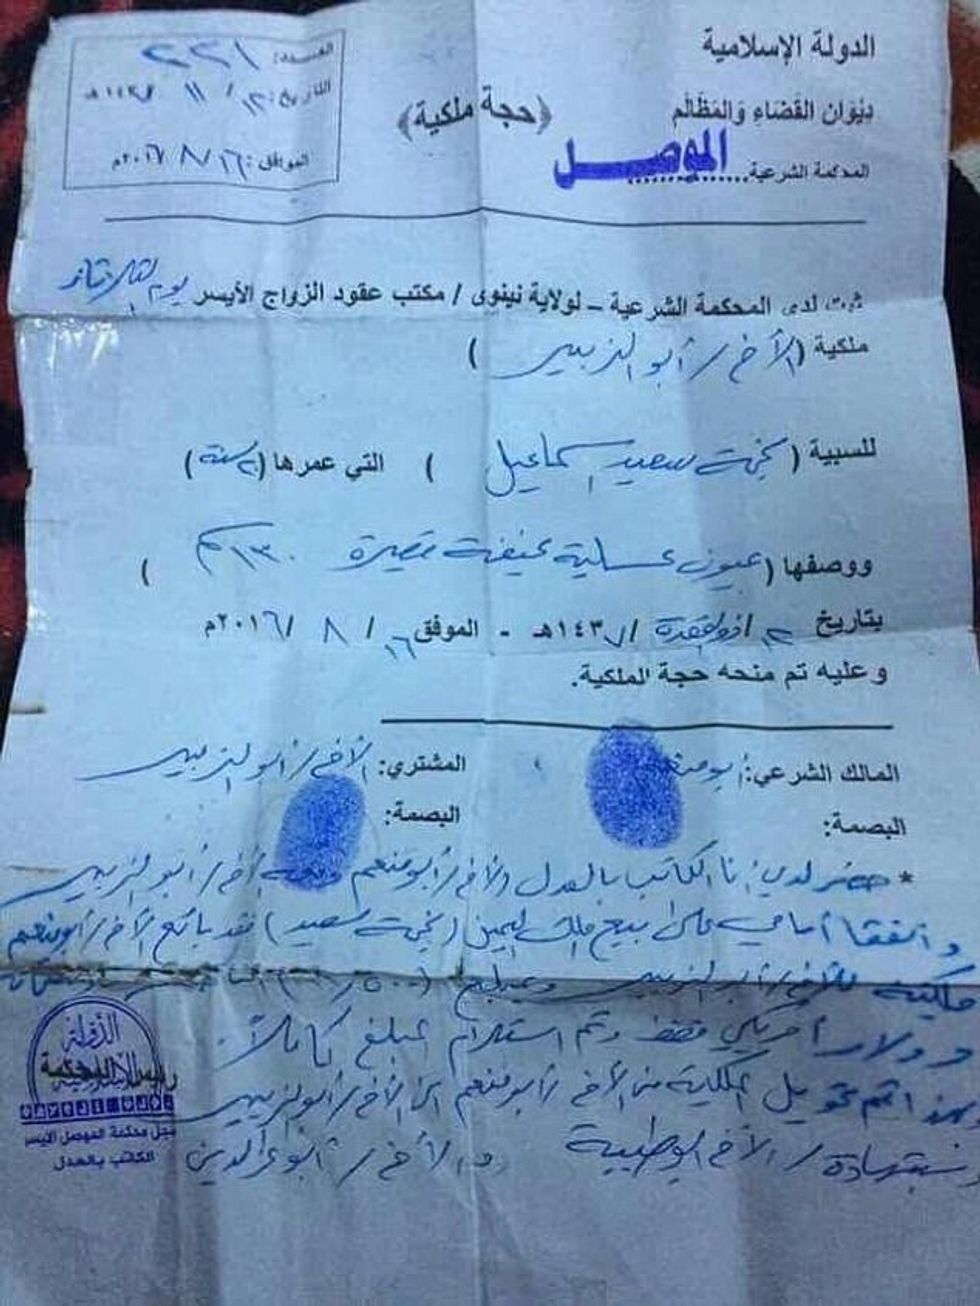 الدولة الإسلامية
ديوان القضاء والمظالم
المحكمة الشرعية الموصل
(حجة ملكية)
العدد: ٢٢١
التاريخ: ١٢ / ١١ / ١٤٣٧هـ
الموافق: ١٦ / ٨ / ٢٠١٦م
ثبت لدى المحكمة الشرعية – لولاية نينوى / مكتب عقود الزواج الأيسر يوم الثلاثاء
ملكية (الأخ / أبو الزبير)
للسبية ( سعيد إسماعيل) التي عمرها (٢٠ سنة)
ووصفها (عيون عسلية ضعيفة قصيرة ١٣٠ سم)
بتاريخ ١٢ / ذو القعدة / ١٤٣٧هـ - الموفق ١٦ / ٨ / ٢٠١٦م
وعليه تم منحه حجة الملكية.
المالك الشرعي:
البصمة:
المشتري: الأخ / أبو الزبير
البصمة:
* حضر لدي أنا الكاتب بالعدل الأخ / أبو منعم الأخ / أبو الزبير
واتفقا أمامي على بيع ملك اليمين ( سعيد) فقد باع الأخ / أبو منعم
ملكيته للأخ / أبو الزبير
دولار أمريكي فقط وتم استلام المبلغ كاملاً.
بهذا تم تحويل الملكية من الأخ / أبو منعم إلى الأخ / أبو الزبير
وبشهادة / الأخ والأخ / أبو عز الدين
الدولة الإسلامية
رئيس المحكمة
الكاتب بالعدل